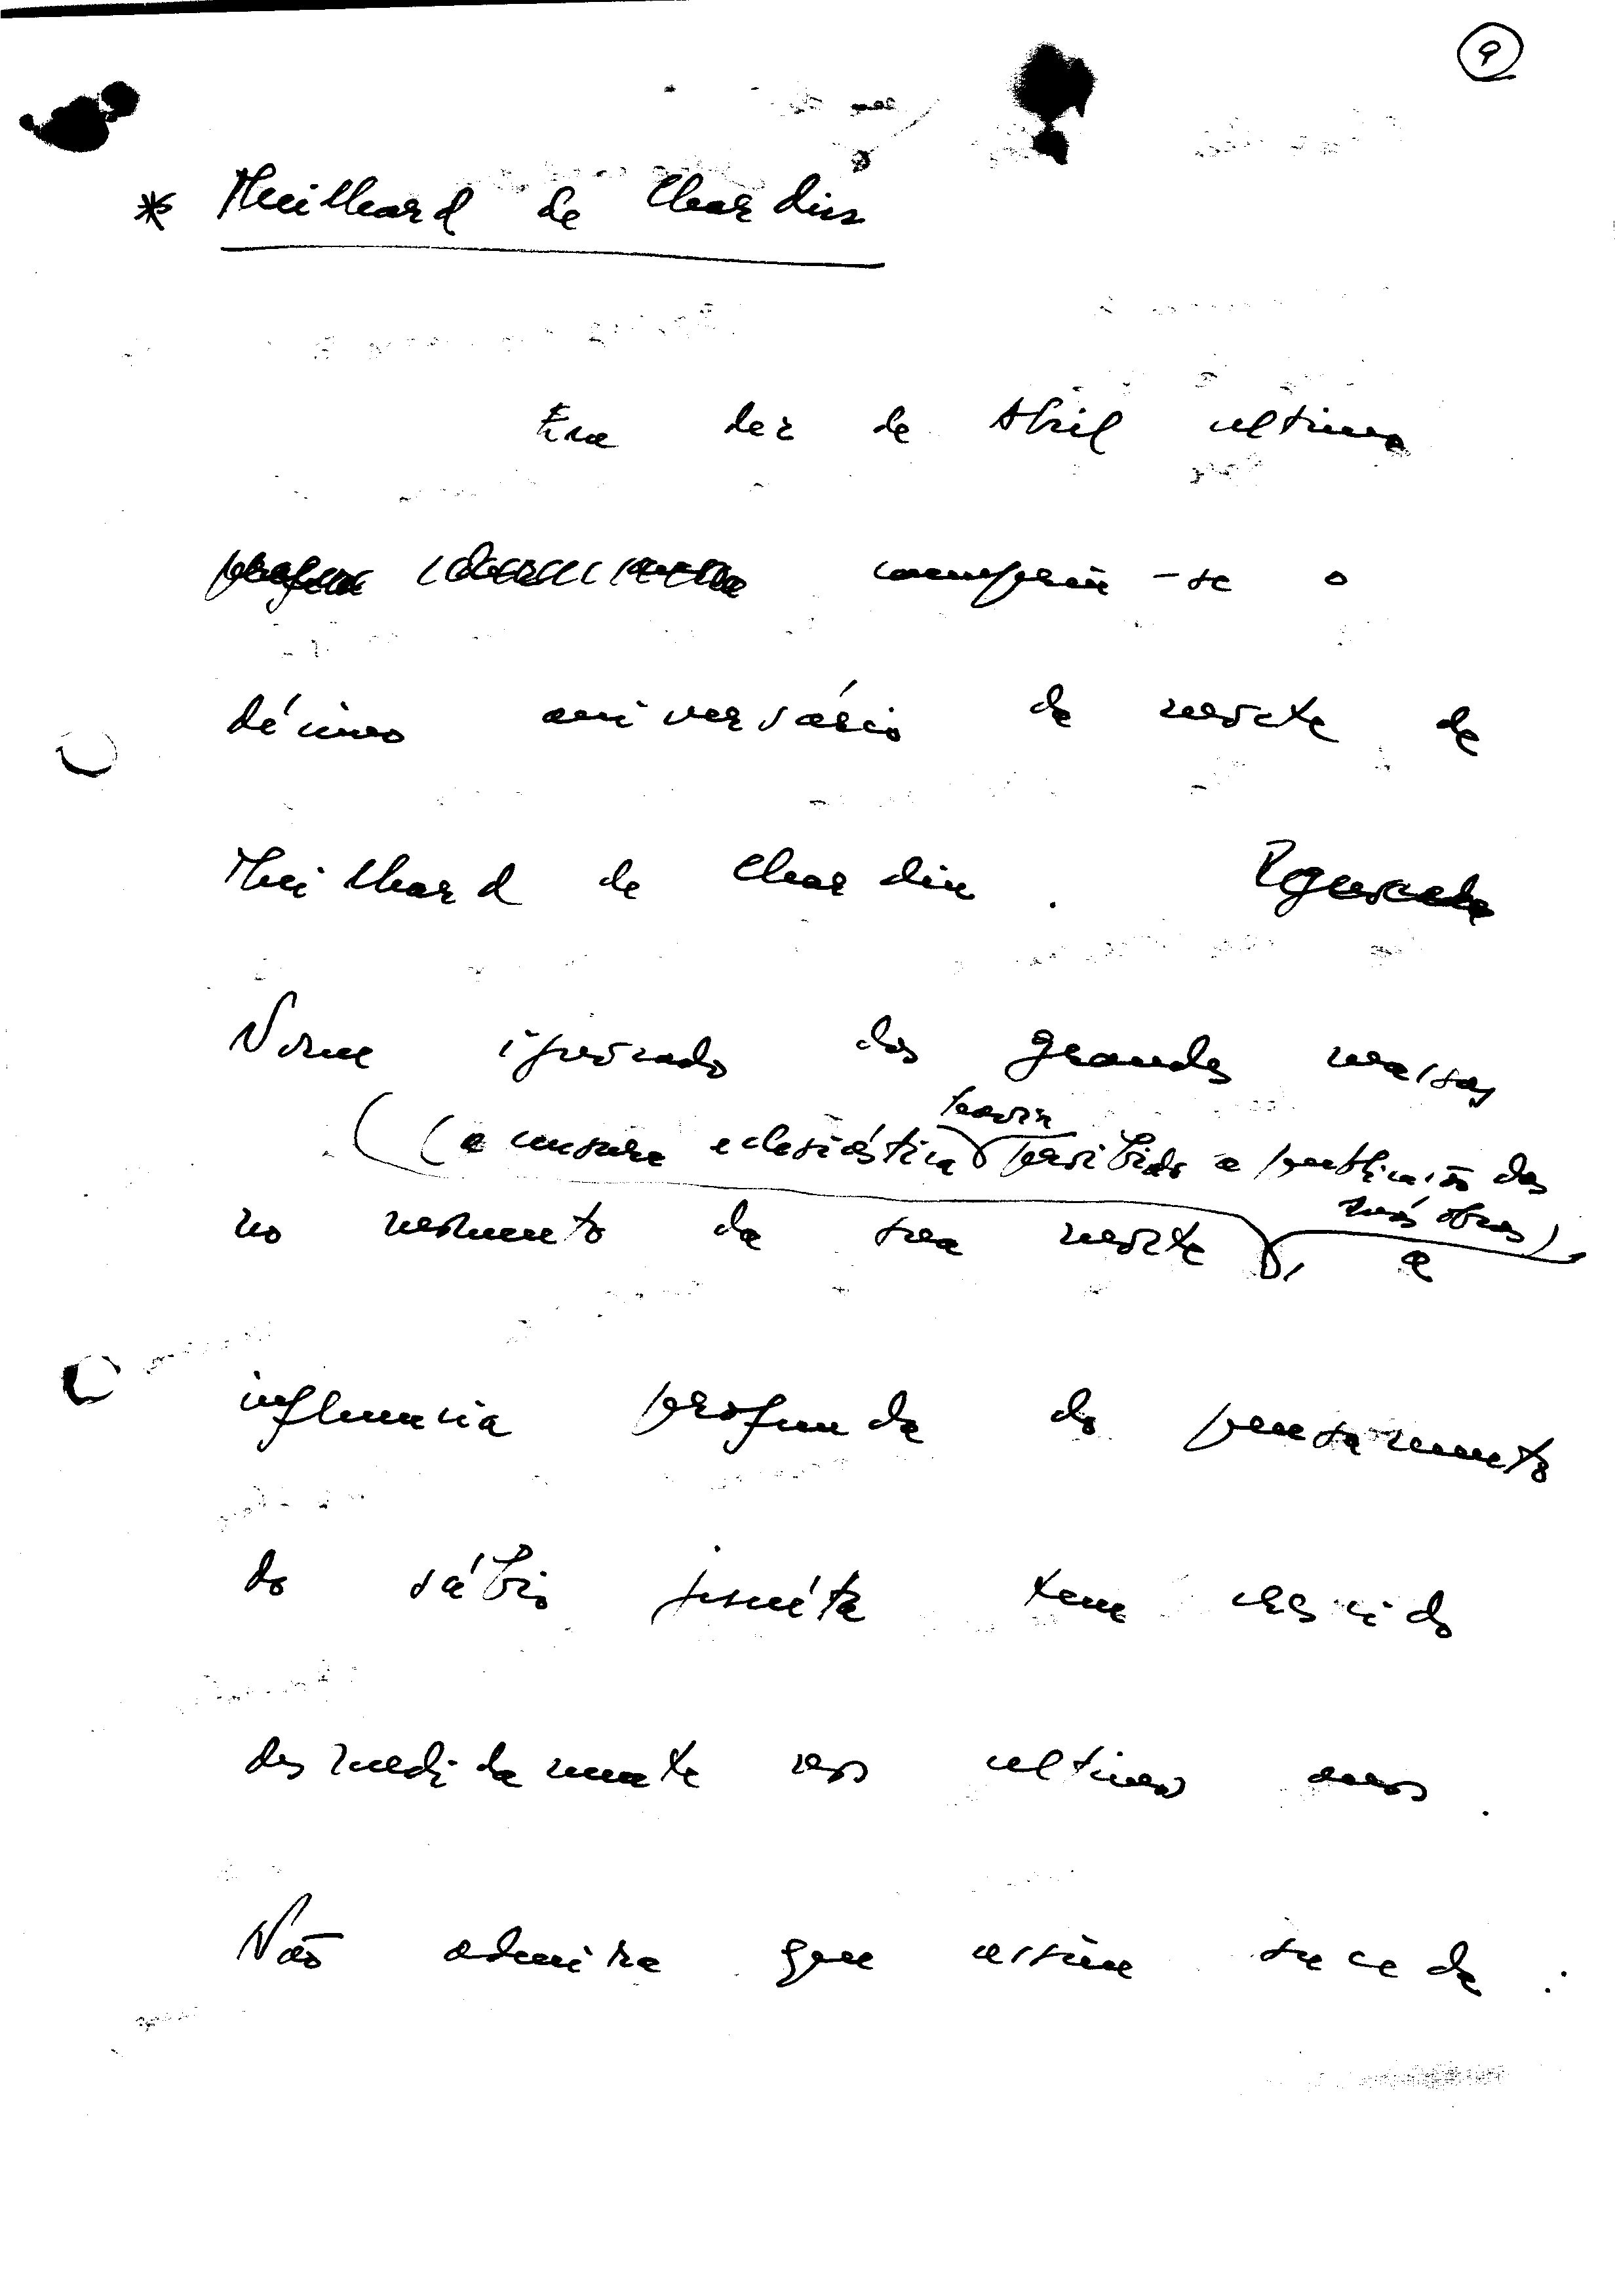 9
* Theilhard de Chardin
Em dez de Abril ultimo
cumpriu-se o
décimo aniversário da morte de
Theilhard de Chardin. Ignorado
Nome ignorado das grandes massas
havia
(a censura eclesiástica proibido a publicação das
suas obras)
no momento da sua morte, a
influencia profunda do pensamento
do sábio jesuíta tem crescido
desmedidamente nos ultimos anos.
Não admira que assim suceda: